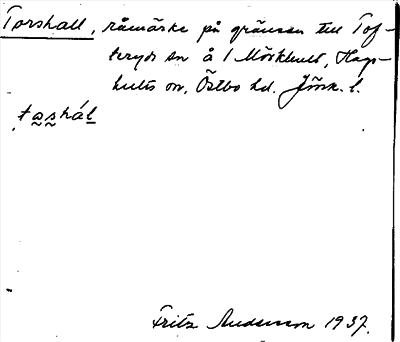 Torshall, råmärke på gränsen till Tof-
teryds sn å 1 Mörkhult, Hags-
hults sn, Östbo hd. Jönk. l.
tas̰hál
Fritz Andersson 1937.